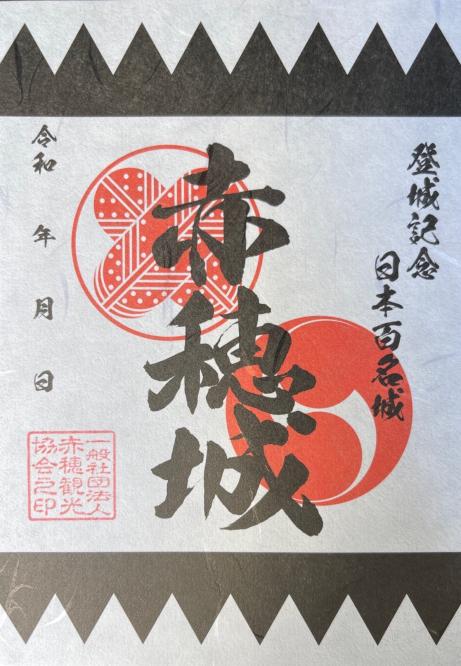 登城記念
日本百名城
赤穂城
令和　年　月　日
一般社団法人
赤穂観光
協会之印